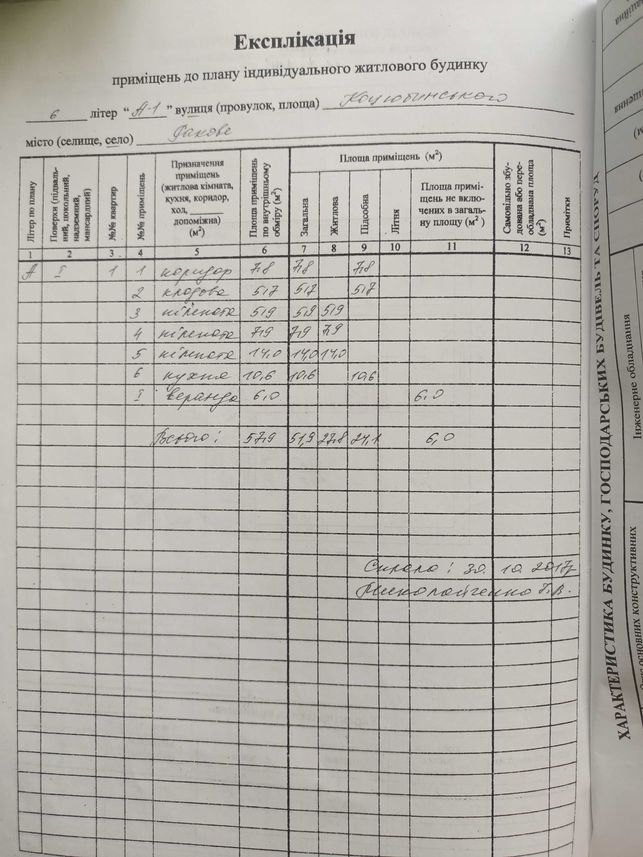 Експлікація
приміщень до плану індивідуального житлового будинку
6 літер “ А-1 ” вулиця (провулок, площа) Коцюбинського
місто (селище, село) Ракове
Літер по плану
Поверхи (підвальний, цокольний, надземний, мансардний)
№№ квартир
№№ приміщень
Призначення приміщень (житлова кімната, кухня, коридор, хол, ______ допоміжна) (м²)
Площа приміщень по внутрішньому обміру (м²)
Площа приміщень (м²)
Загальна
Житлова
Підсобна
Літня
Площа приміщень не включених в загальну площу (м²)
Самовільно збудована або переобладнана площа (м²)
Примітки
1 2 3 4 5 6 7 8 9 10 11 12 13
А I 1 1 коридор 7,8 7,8 7,8
2 кладова 5,7 5,7 5,7
3 кімната 5,9 5,9 5,9
4 кімната 7,9 7,9 7,9
5 кімната 14,0 14,0 14,0
6 кухня 10,6 10,6 10,6
I веранда 6,0 6,0
Всього: 57,9 51,9 27,8 24,1 6,0
Склала: 30. 10. 2017р
Миколайченко Г.В.
ХАРАКТЕРИСТИКА БУДИНКУ, ГОСПОДАРСЬКИХ БУДІВЕЛЬ ТА СПОРУД
Інженерне обладнання
основних конструктивних